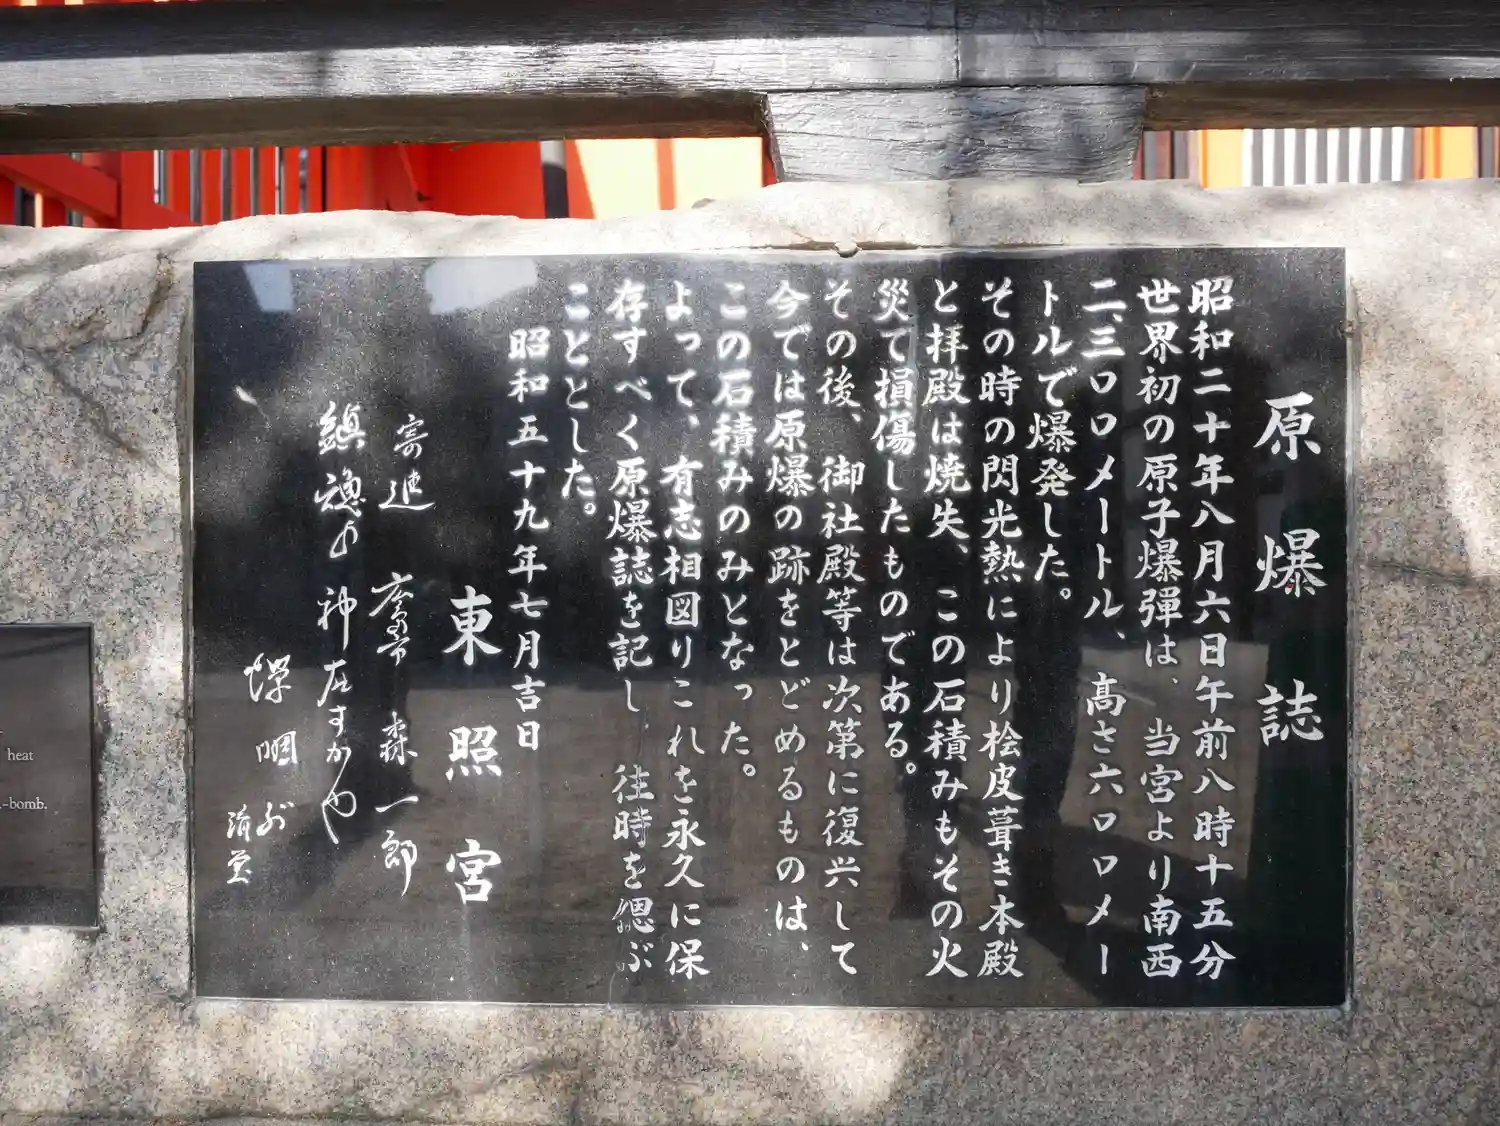 原爆誌
昭和二十年八月六日午前八時十五分
世界初の原子爆彈は、当宮より南西
二、三ロロメートル、高さ六ロロメー
トルで爆発した。
その時の閃光熱により桧皮葺き本殿
と拝殿は焼失、この石積みもその火
災で損傷したものである。
その後、御社殿等は次第に復興して
今では原爆の跡をとどめるものは、
この石積みのみとなった。
よって、有志相図りこれを永久に保
存すべく原爆誌を記し、往時を偲ぶ
こととした。
昭和五十九年七月吉日
東照宮
寄進 広島市 森一郎
鎮魂の神在すかや
heat
-bomb.